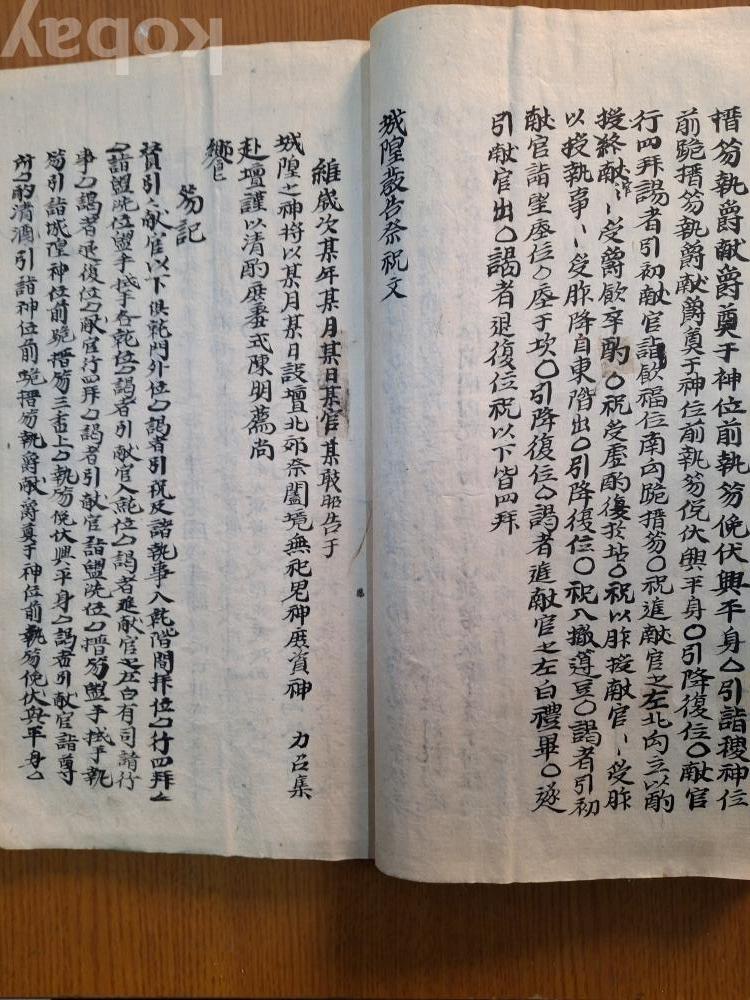 搢笏執爵献爵奠于神位前執笏俛伏興平身○引詣稷神位
前跪搢笏執爵献爵奠于神位前執笏俛伏興平身○引降復位○献官
行四拜謁者引初献官詣飮福位南向跪搢笏○祝進献官之左北向立以酌
授終献官〻受爵飮卒酌○祝受虛酌復於坫○祝以胙授献官〻受胙
以授執事〻受胙降自東階出○引降復位○祝入撤籩豆○謁者引初
献官詣望瘞位○瘞于坎○引降復位○謁者進献官之左白禮畢○遂
引献官出○謁者退復位祝以下皆四拜
城隍發告祭祝文
維歲次某年某月某日某官某敢昭告于
城隍之神將以某月某日設壇北郊祭闔境無祀鬼神庶資神 力召集
赴壇謹以清酌庶羞式陳明薦尚
饗
笏記
賛引〻献官以下俱就門外位○謁者引祝及諸執事入就階間拜位○行四拜○
○詣盥洗位盥手帨手各就位○謁者引献官入就位○謁者進献官之左白有司請行
事○謁者退復位○献官行四拜○謁者引献官詣盥洗位○搢笏盥手帨手執
笏引詣城隍神位前跪搢笏三上香○執笏俛伏興平身○謁者引献官詣尊
所○酌清酒引詣神位前跪搢笏執爵献爵奠于神位前執笏俛伏興平身○
kobay